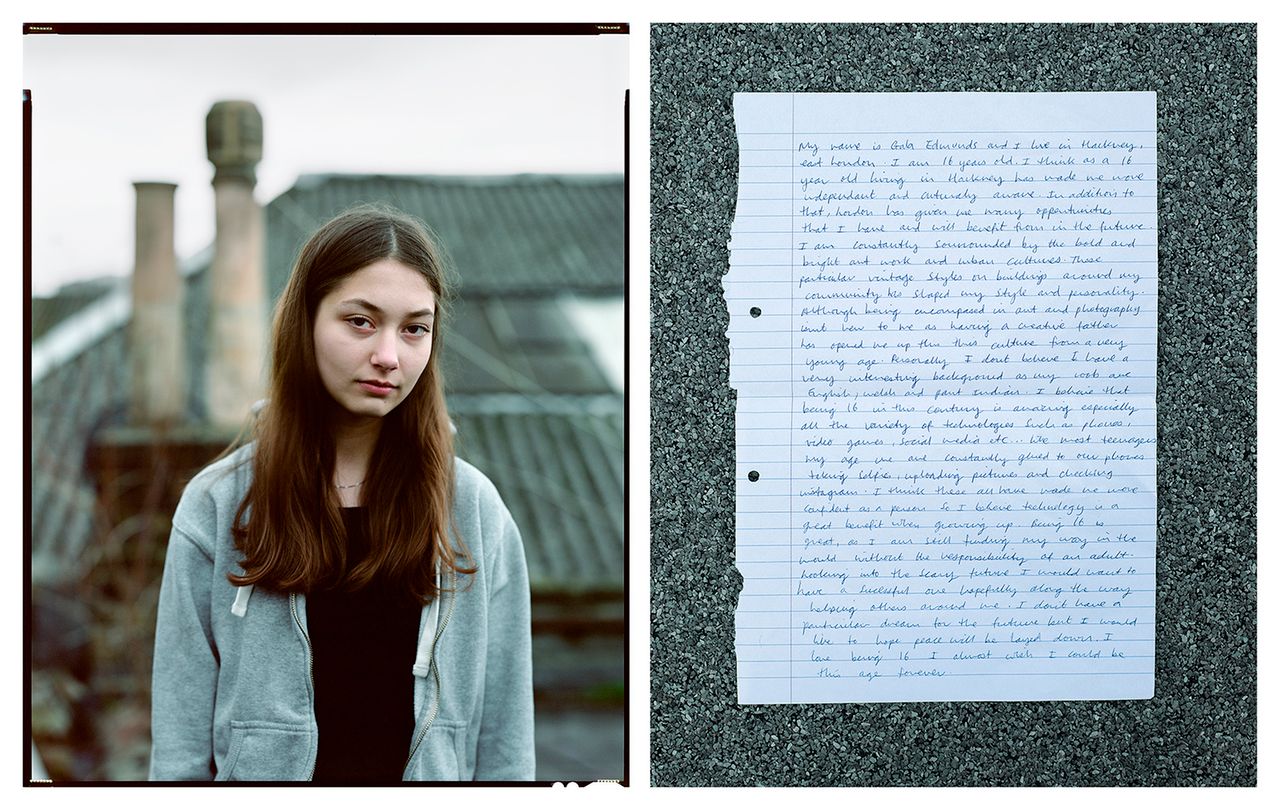 My name is Gala Edmunds and I live in Hackney,
east London. I am 16 years old. I think as a 16
year old living in Hackney has made me more
independant and culturally aware. In addition to
that, London has given me many oppertunities
that I have and will benefit from in the future.
I am constantly sourrounded by the bold and
bright art work and urban cultures. These
particular vintage styles on buildings around my
community has shaped my style and personality.
Although being encompased in art and photography
isn't new to me as having a creative father
has opened me up this this culture from a very
young age. Personally I dont believe I have a
very interesting background as my roots are
English, welsh and part Indian. I believe that
being 16 in this century is amazing especially
all the variety of technologies such as phones,
video games, social media etc... Like most teenagers
my age we are constantly glued to our phones
taking selfies, uploading pictures and checking
instagram. I think these all have made me more
confident as a person so I believe technology is a
great benefit when growing up. Being 16 is
great, as I am still finding my way in the
world without the responsibility of an adult.
Looking into the scary future I would want to
have a sucessful one hopefully along the way
helping others around me. I don't have a
particular dream for the future but I would
like to hope peace will be layed down. I
love being 16 I almost wish I could be
this age forever